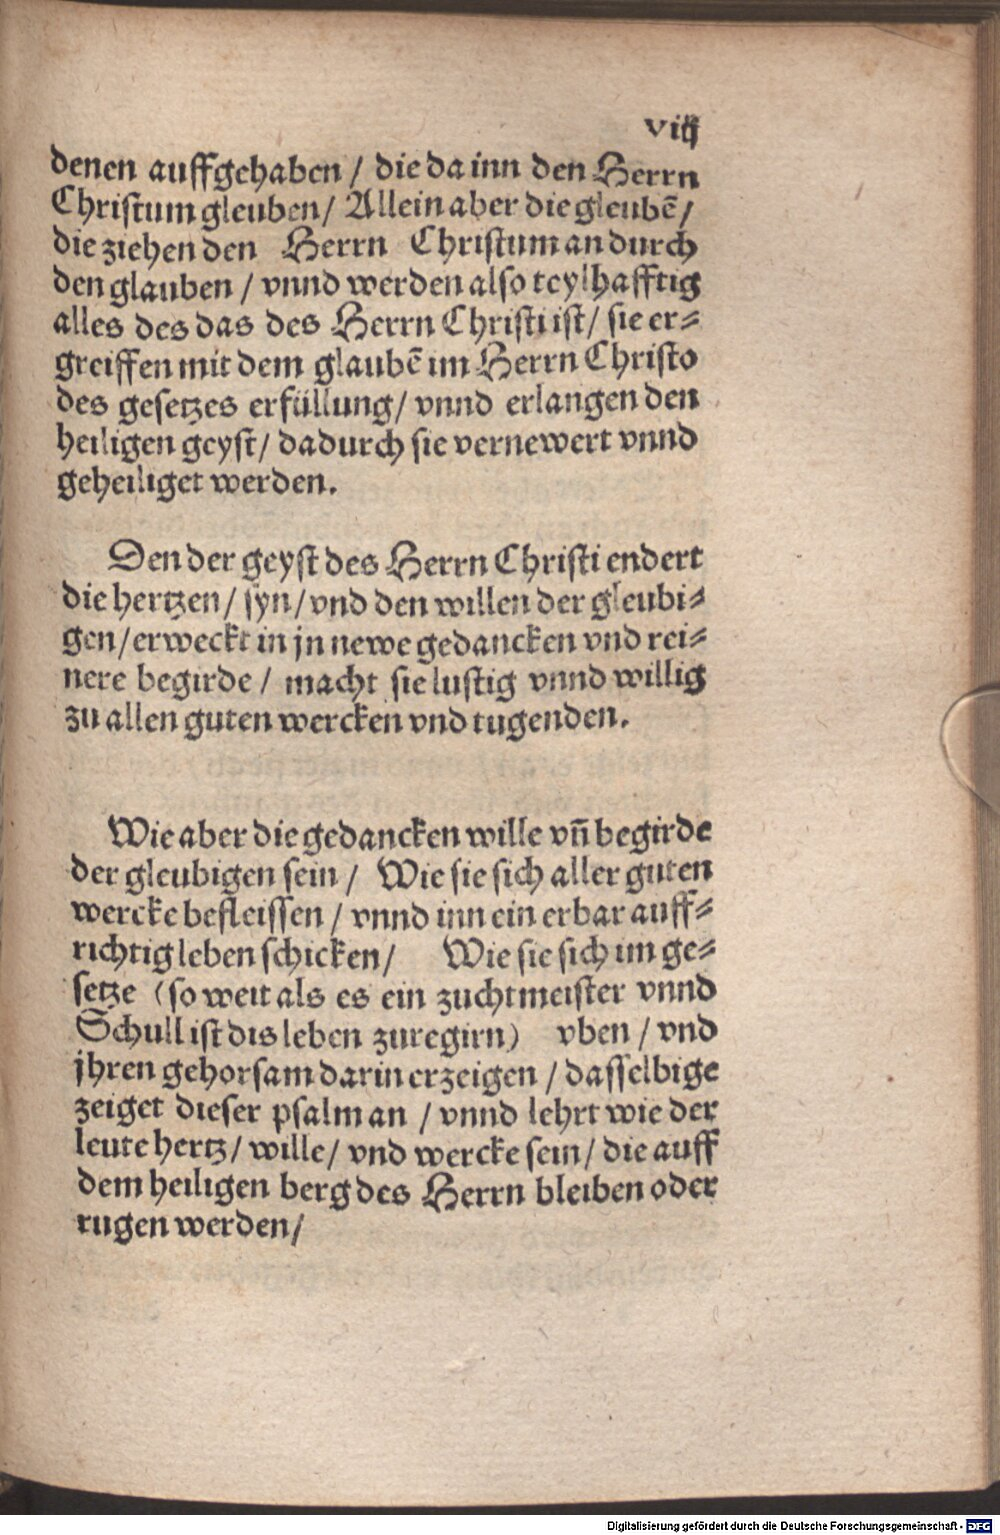 viij
denen auffgehaben / die da inn den Herrn
Christum gleuben / Allein aber die gleubẽ /
die ziehen den Herrn Christum an durch
den glauben / vnnd werden also teylhafftig
alles des das des Herrn Christi ist / sie er⸗
greiffen mit dem glaubẽ im Herrn Christo
des gesetzes erfüllung / vnnd erlangen den
heiligen geyst / dadurch sie vernewert vnnd
geheiliget werden.
Den der geyst des Herrn Christi endert
die hertzen / syn / vnd den willen der gleubi⸗
gen / erweckt in jn newe gedancken vnd rei⸗
nere begirde / macht sie lustig vnnd willig
zu allen guten wercken vnd tugenden.
Wie aber die gedancken wille vñ begirde
der gleubigen sein / Wie sie sich aller guten
wercke befleissen / vnnd inn ein erbar auff⸗
richtig leben schicken / Wie sie sich im ge⸗
setze (so weit als es ein zuchtmeister vnnd
Schull ist dis leben zuregirn) vben / vnd
jhren gehorsam darin erzeigen / dasselbige
zeiget dieser psalm an / vnnd lehrt wie der
leute hertz / wille / vnd wercke sein / die auff
dem heiligen berg des Herrn bleiben oder
rugen werden /
Digitalisierung gefördert durch die Deutsche Forschungsgemeinschaft - DFG